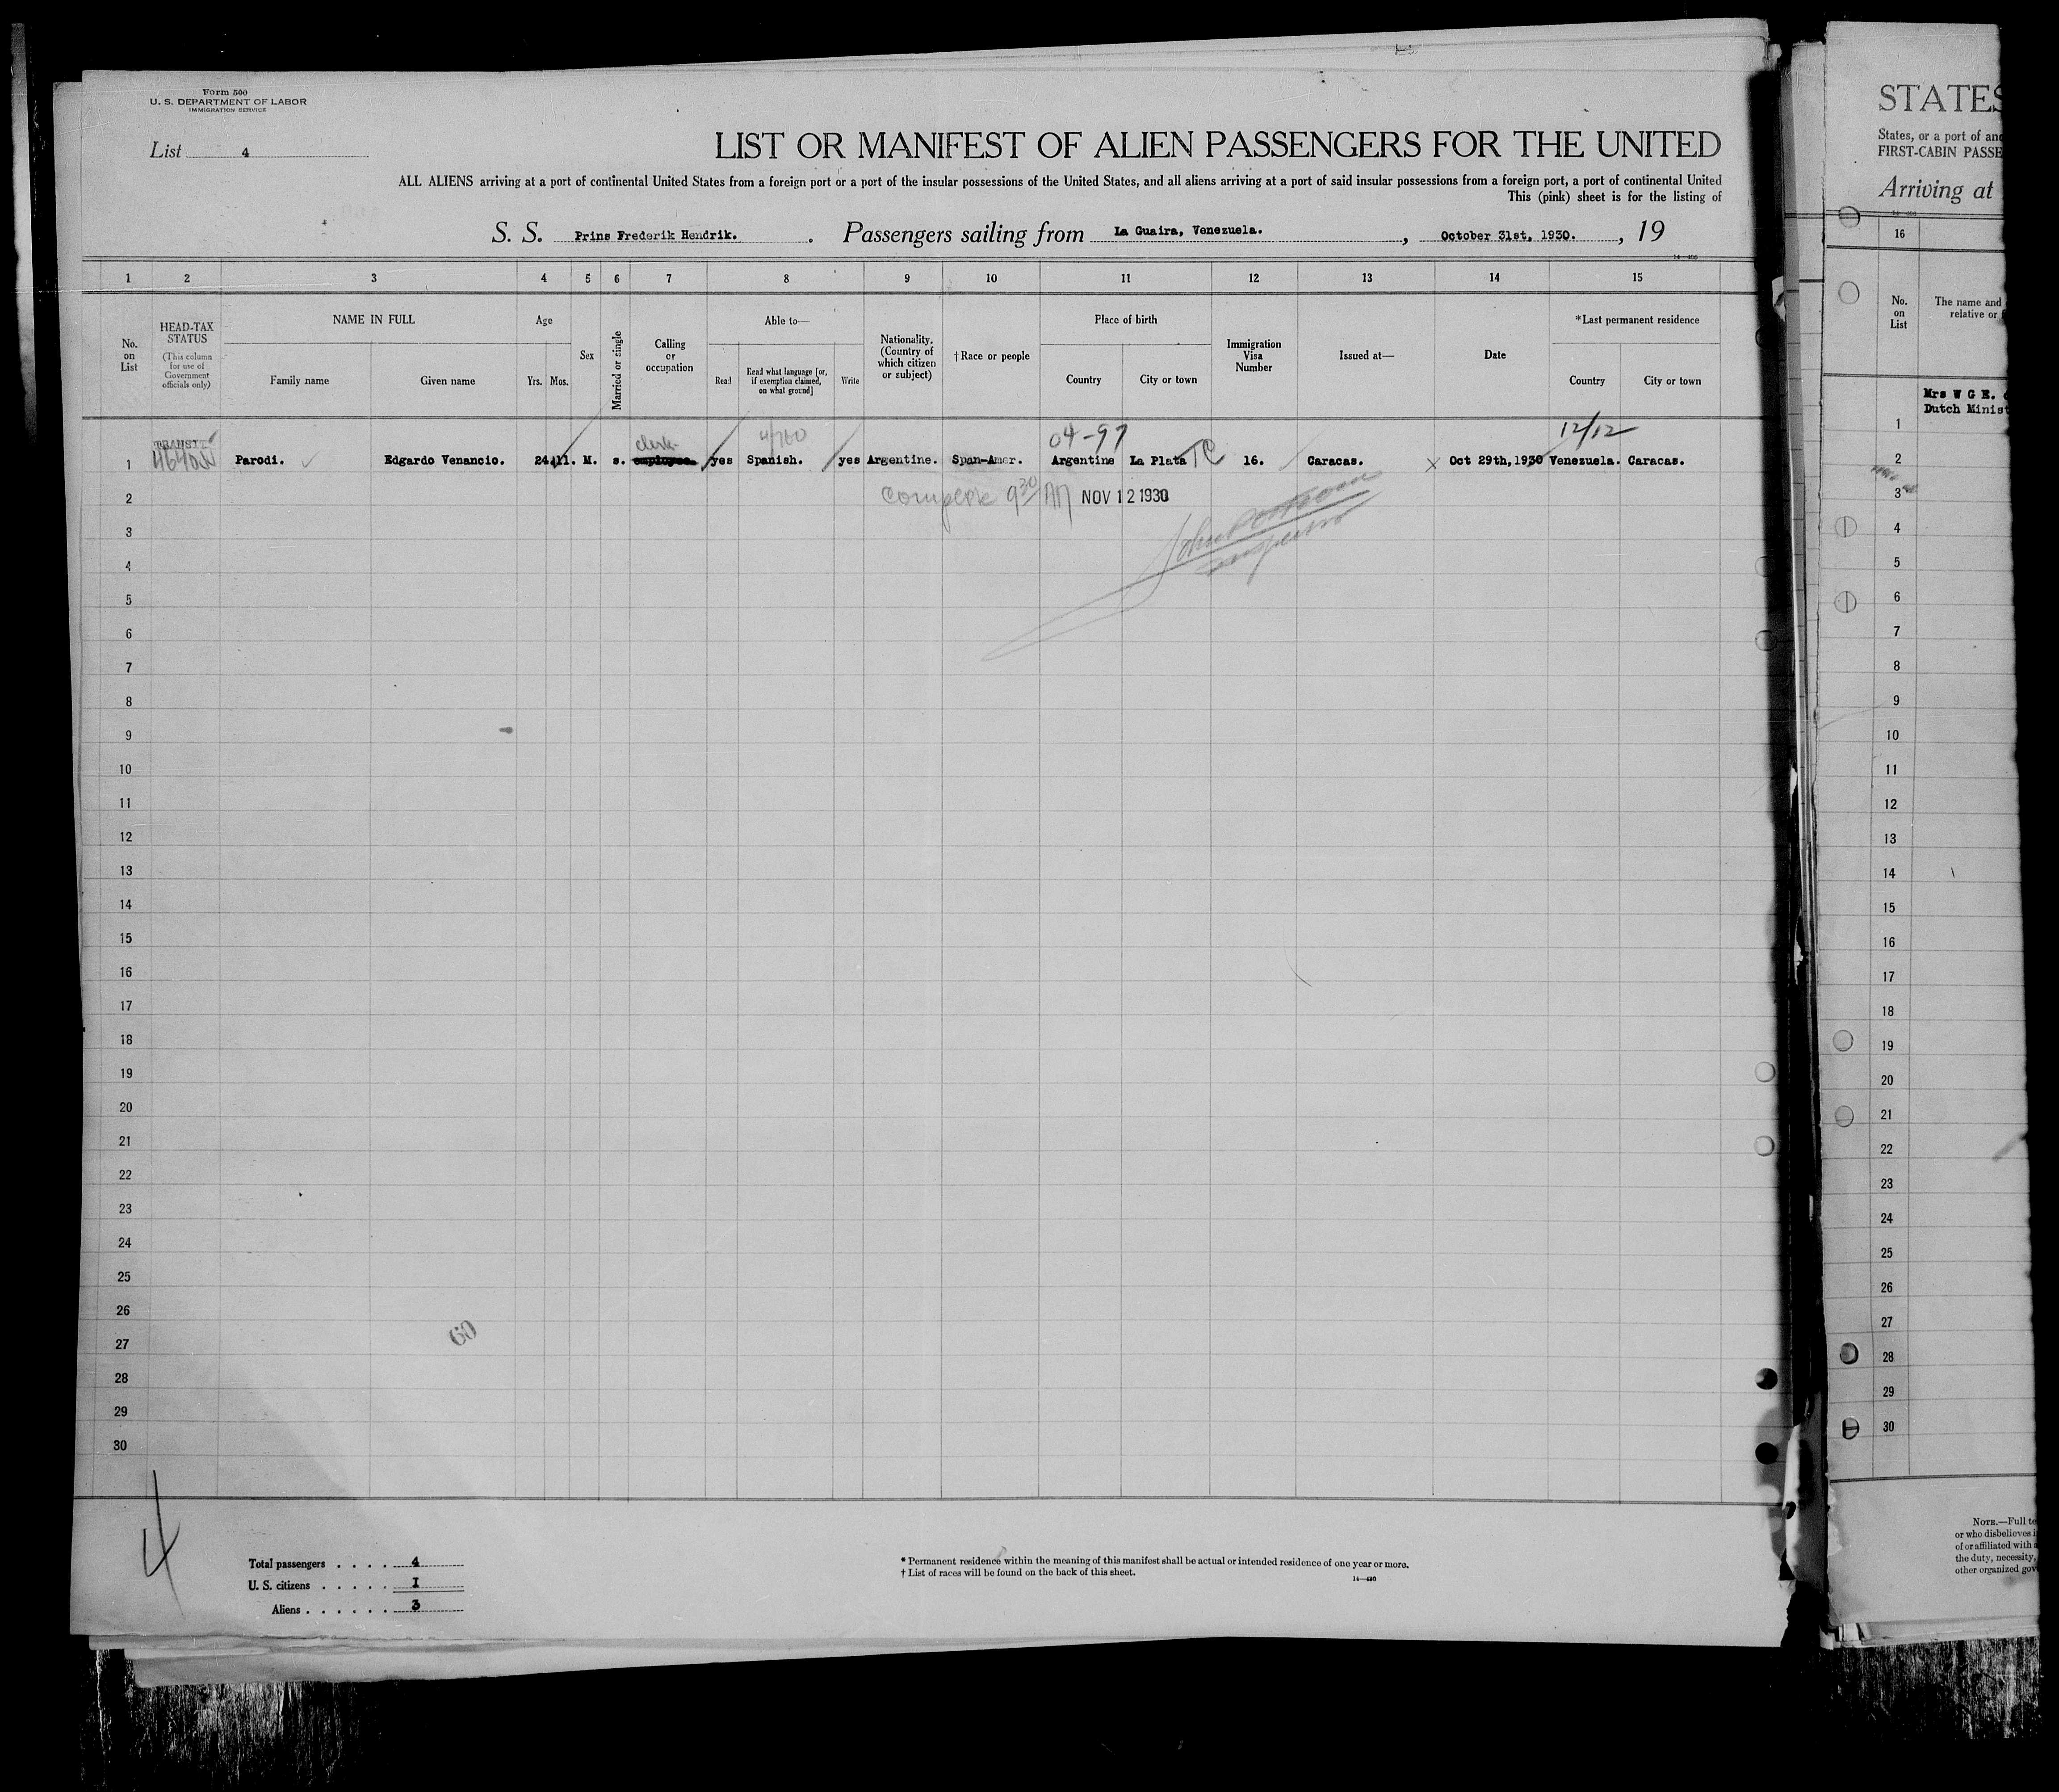 Form 500
U. S. DEPARTMENT OF LABOR
IMMIGRATION SERVICE
List 4
LIST OR MANIFEST OF ALIEN PASSENGERS FOR THE UNITED
ALL ALIENS arriving at a port of continental United States from a foreign port or a port of the insular possessions of the United States, and all aliens arriving at a port of said insular possessions from a foreign port, a port of continental United
This (pink) sheet is for the listing of
S. S. Prins Frederik Hendrik. . Passengers sailing from La Guaira, Venezuela. , October 31st, 1930. , 19
14—480
1 2 3 4 5 6 7 8 9 10 11 12 13 14 15
No. on List
HEAD-TAX STATUS
(This column for use of Government officials only)
NAME IN FULL
Family name Given name
Age
Yrs. Mos.
Sex
Married or single
Calling or occupation
Able to—
Read
Read what language [or, if exemption claimed, on what ground]
Write
Nationality. (Country of which citizen or subject)
† Race or people
Place of birth
Country City or town
Immigration Visa Number
Issued at—
Date
*Last permanent residence
Country City or town
TRANSIT clerk 4/760 04-97 12/12
1 Parodi. Edgardo Venancio. 24 11. M. s. employee. yes Spanish. yes Argentine. Span-Amer. Argentine La Plata 16. Caracas. X Oct 29th, 1930 Venezuela. Caracas.
2 complete 9 30 AM NOV 12 1930
3 John
4 Inspector
5
6
7
8
9
10
11
12
13
14
15
16
17
18
19
20
21
22
23
24
25
26
27 60
28
29
30
4
Total passengers . . . . . 4
U. S. citizens . . . . . I
Aliens . . . . . . 3
* Permanent residence within the meaning of this manifest shall be actual or intended residence of one year or more.
† List of races will be found on the back of this sheet.
14—480
STATES
States, or a port of an
FIRST-CABIN PASSE
Arriving at
16
No. on List
The name and
relative or
Mrs W G E.
Dutch Minist
1
2
3
4
5
6
7
8
9
10
11
12
13
14
15
16
17
18
19
20
21
22
23
24
25
26
27
28
29
30
NOTE.—Full te
or who disbelieves i
of or affiliated with a
the duty, necessity,
other organized gov